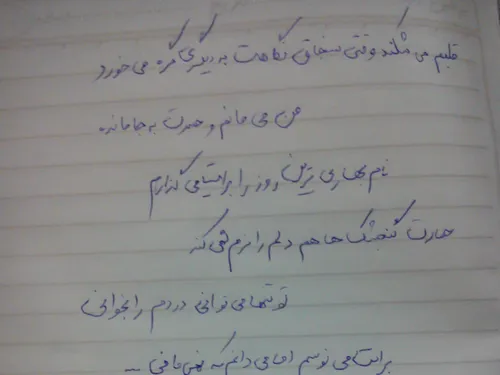 قلبم می شکند وقتی سنجاق نگاهت به دیگری گره می خورد
من می مانم و حسرت به جا مانده
نام بهاری ترین روز را برایت می گذارم
گنجشک ها هم دلم را نرم نمی کند
تو تنها می توانی دردم را بخوانی
برایت می نویسم اما می دانم که نمی ...